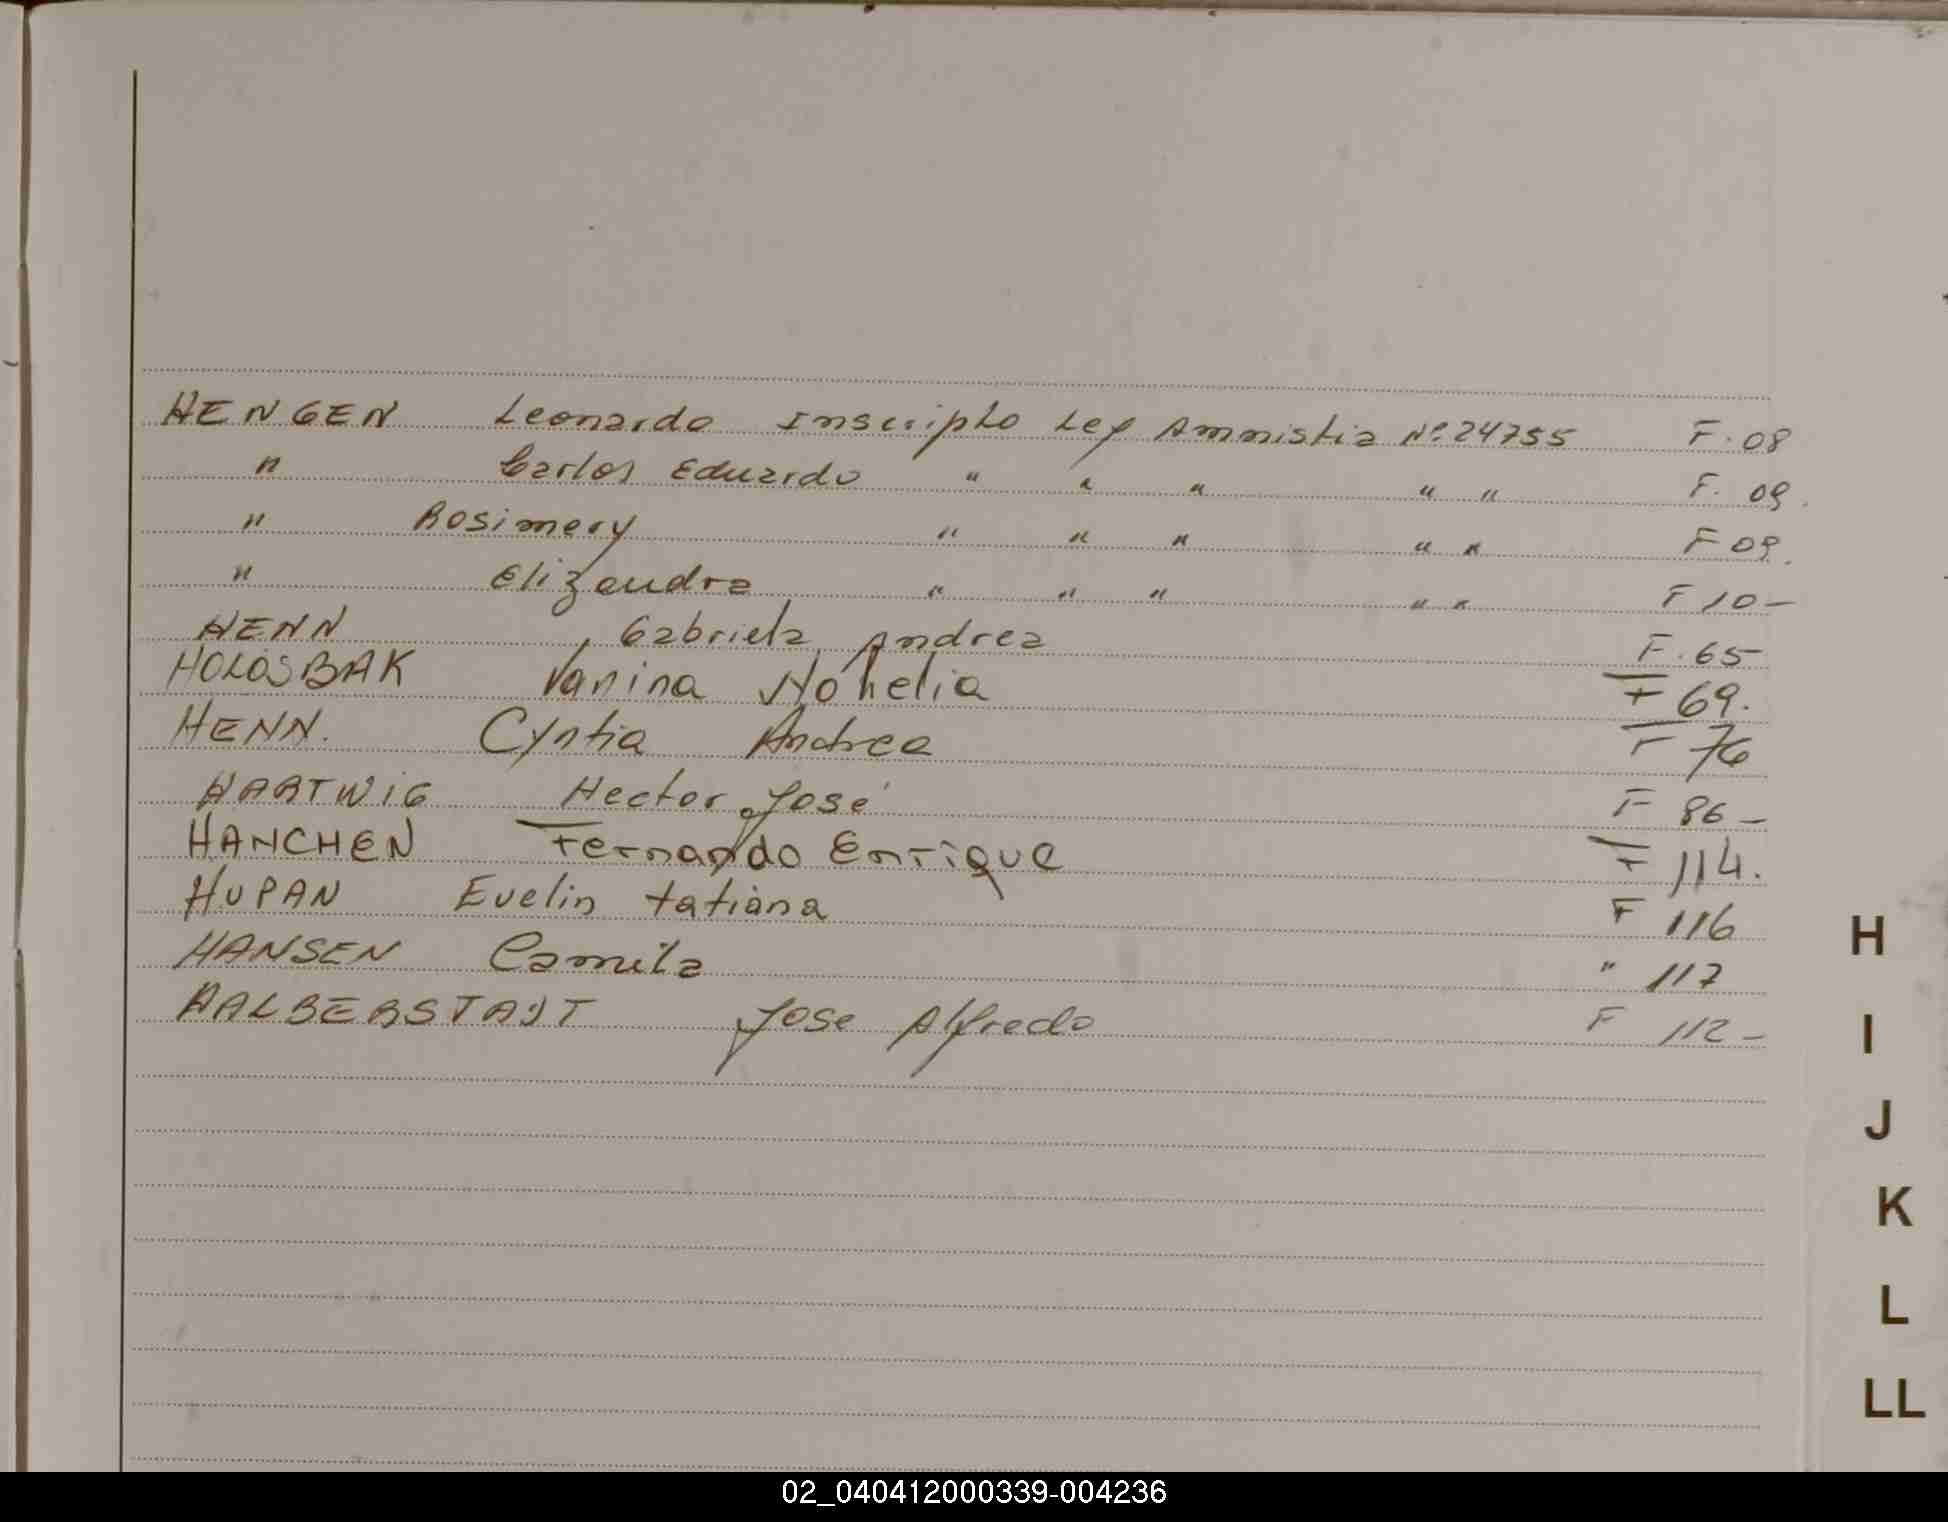 HENGEN Leonardo Inscripto Ley Amnistia Nº 24755 F. 08
" Carlos Eduardo " " " " " F. 09.
" Rosimery " " " " " F 09.
" Elizandra " " " " " F 10-
HENN, Gabriela Andrea F. 65
HOLOSBAK Vanina Nohelia F 69.
HENN. Cyntia Andrea F 76
HARTWIG Hector José F 86-
HANCHEN Fernando Enrique F 114.
HUPAN Evelin tatiana F 116
HANSEN Camila " 117
HALBERSTADT Jose Alfredo F 112-
H
I
J
K
L
LL
02_040412000339-004236